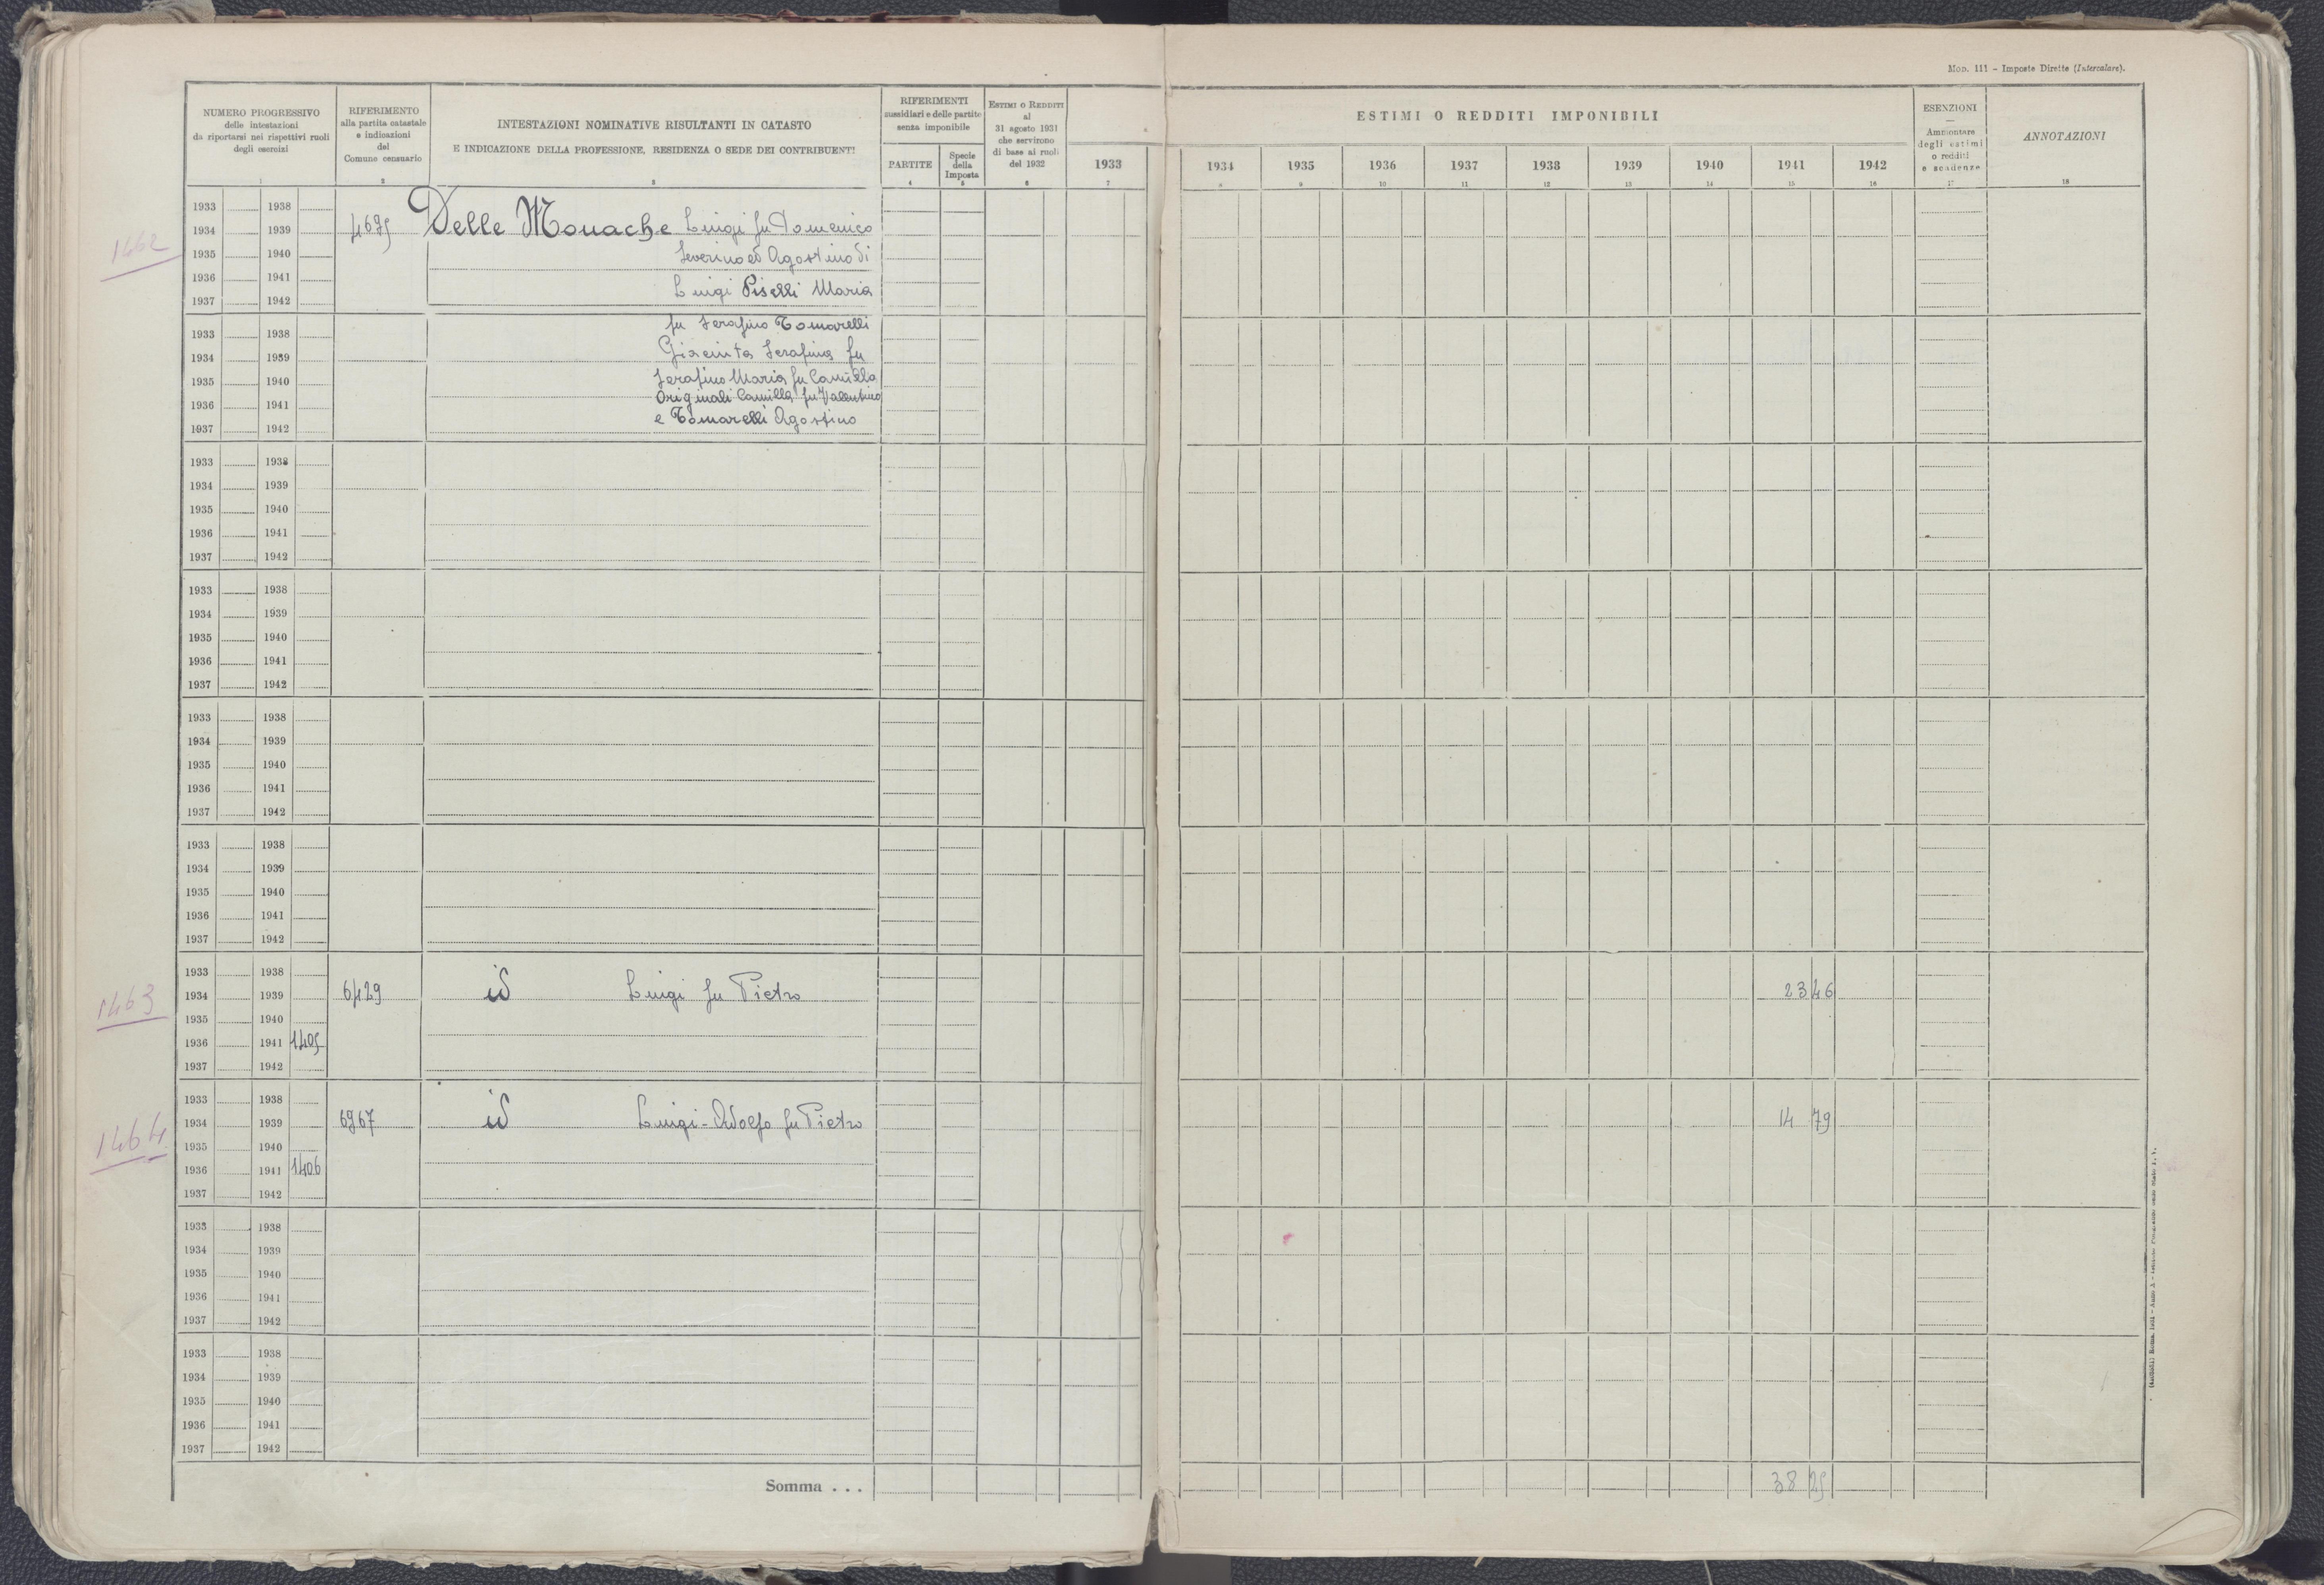 Mod. 111 - Imposte Dirette (Intercalare).
NUMERO PROGRESSIVO
delle intestazioni
da riportarsi nei rispettivi ruoli
degli esercizi
1
RIFERIMENTO
alla partita catastale
e indicazioni
del
Comune censuario
2
INTESTAZIONI NOMINATIVE RISULTANTI IN CATASTO
E INDICAZIONE DELLA PROFESSIONE, RESIDENZA O SEDE DEI CONTRIBUENTI
3
RIFERIMENTI
sussidiari e delle partite
senza imponibile
PARTITE
4
Specie
della
Imposta
5
ESTIMI O REDDITI
al
31 agosto 1931
che servirono
di base ai ruoli
del 1932
6
ESTIMI O REDDITI IMPONIBILI
1933 1934 1935 1936 1937 1938 1939 1940 1941 1942
7 8 9 10 11 12 13 14 15 16
ESENZIONI
—
Ammontare
degli estimi
o redditi
e scadenze
17
ANNOTAZIONI
18
1462
1933 1938
1934 1939 4675 Delle Monache Luigi fu Domenico
1935 1940 Severino ed Agostino di
1936 1941 Luigi Piselli Maria
1937 1942
1933 1938 fu Serafino Tomarelli
1934 1939 Giacinta Serafina fu
1935 1940 Serafino Maria fu Camilla
1936 1941 Originali Camilla fu Vallentino
1937 1942 e Tomarelli Agostino
1933 1938
1934 1939
1935 1940
1936 1941
1937 1942
1933 1938
1934 1939
1935 1940
1936 1941
1937 1942
1933 1938
1934 1939
1935 1940
1936 1941
1937 1942
1933 1938
1934 1939
1935 1940
1936 1941
1937 1942
1463
1933 1938
1934 1939 6429 id Luigi fu Pietro 23 46
1935 1940
1936 1941 1405
1937 1942
1464
1933 1938
1934 1939 6967 id Luigi-Adolfo fu Pietro 14 79
1935 1940
1936 1941 1406
1937 1942
1933 1938
1934 1939
1935 1940
1936 1941
1937 1942
1933 1938
1934 1939
1935 1940
1936 1941
1937 1942
Somma . . . 38 25